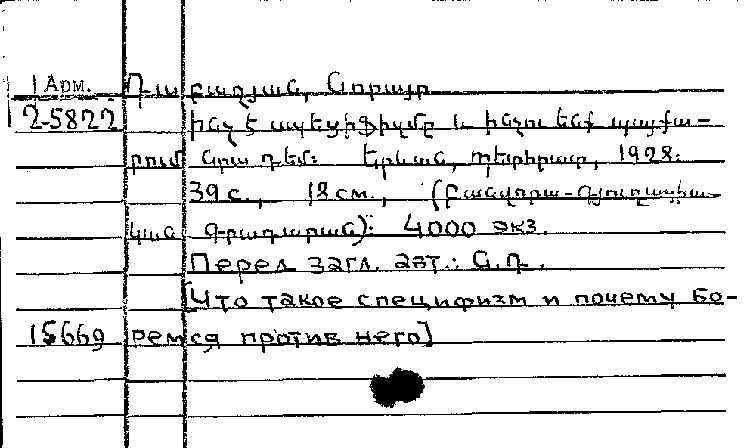 Арм. Ղարաբաղյան, Նորայր
2-5822 Ինչ է սպեցիֆիզմը և ինչու ենք պայքա-
րում նրա դեմ: Երևան, պետհրատ, 1928:
39 с., 18 см., (Բանվորա-Գյուղացիա-
կան Գրադարան): 4000 экз.
Перед загл. авт.: Ն.Ղ.
[Что такое специфизм и почему бо-
15669 ремся против него]